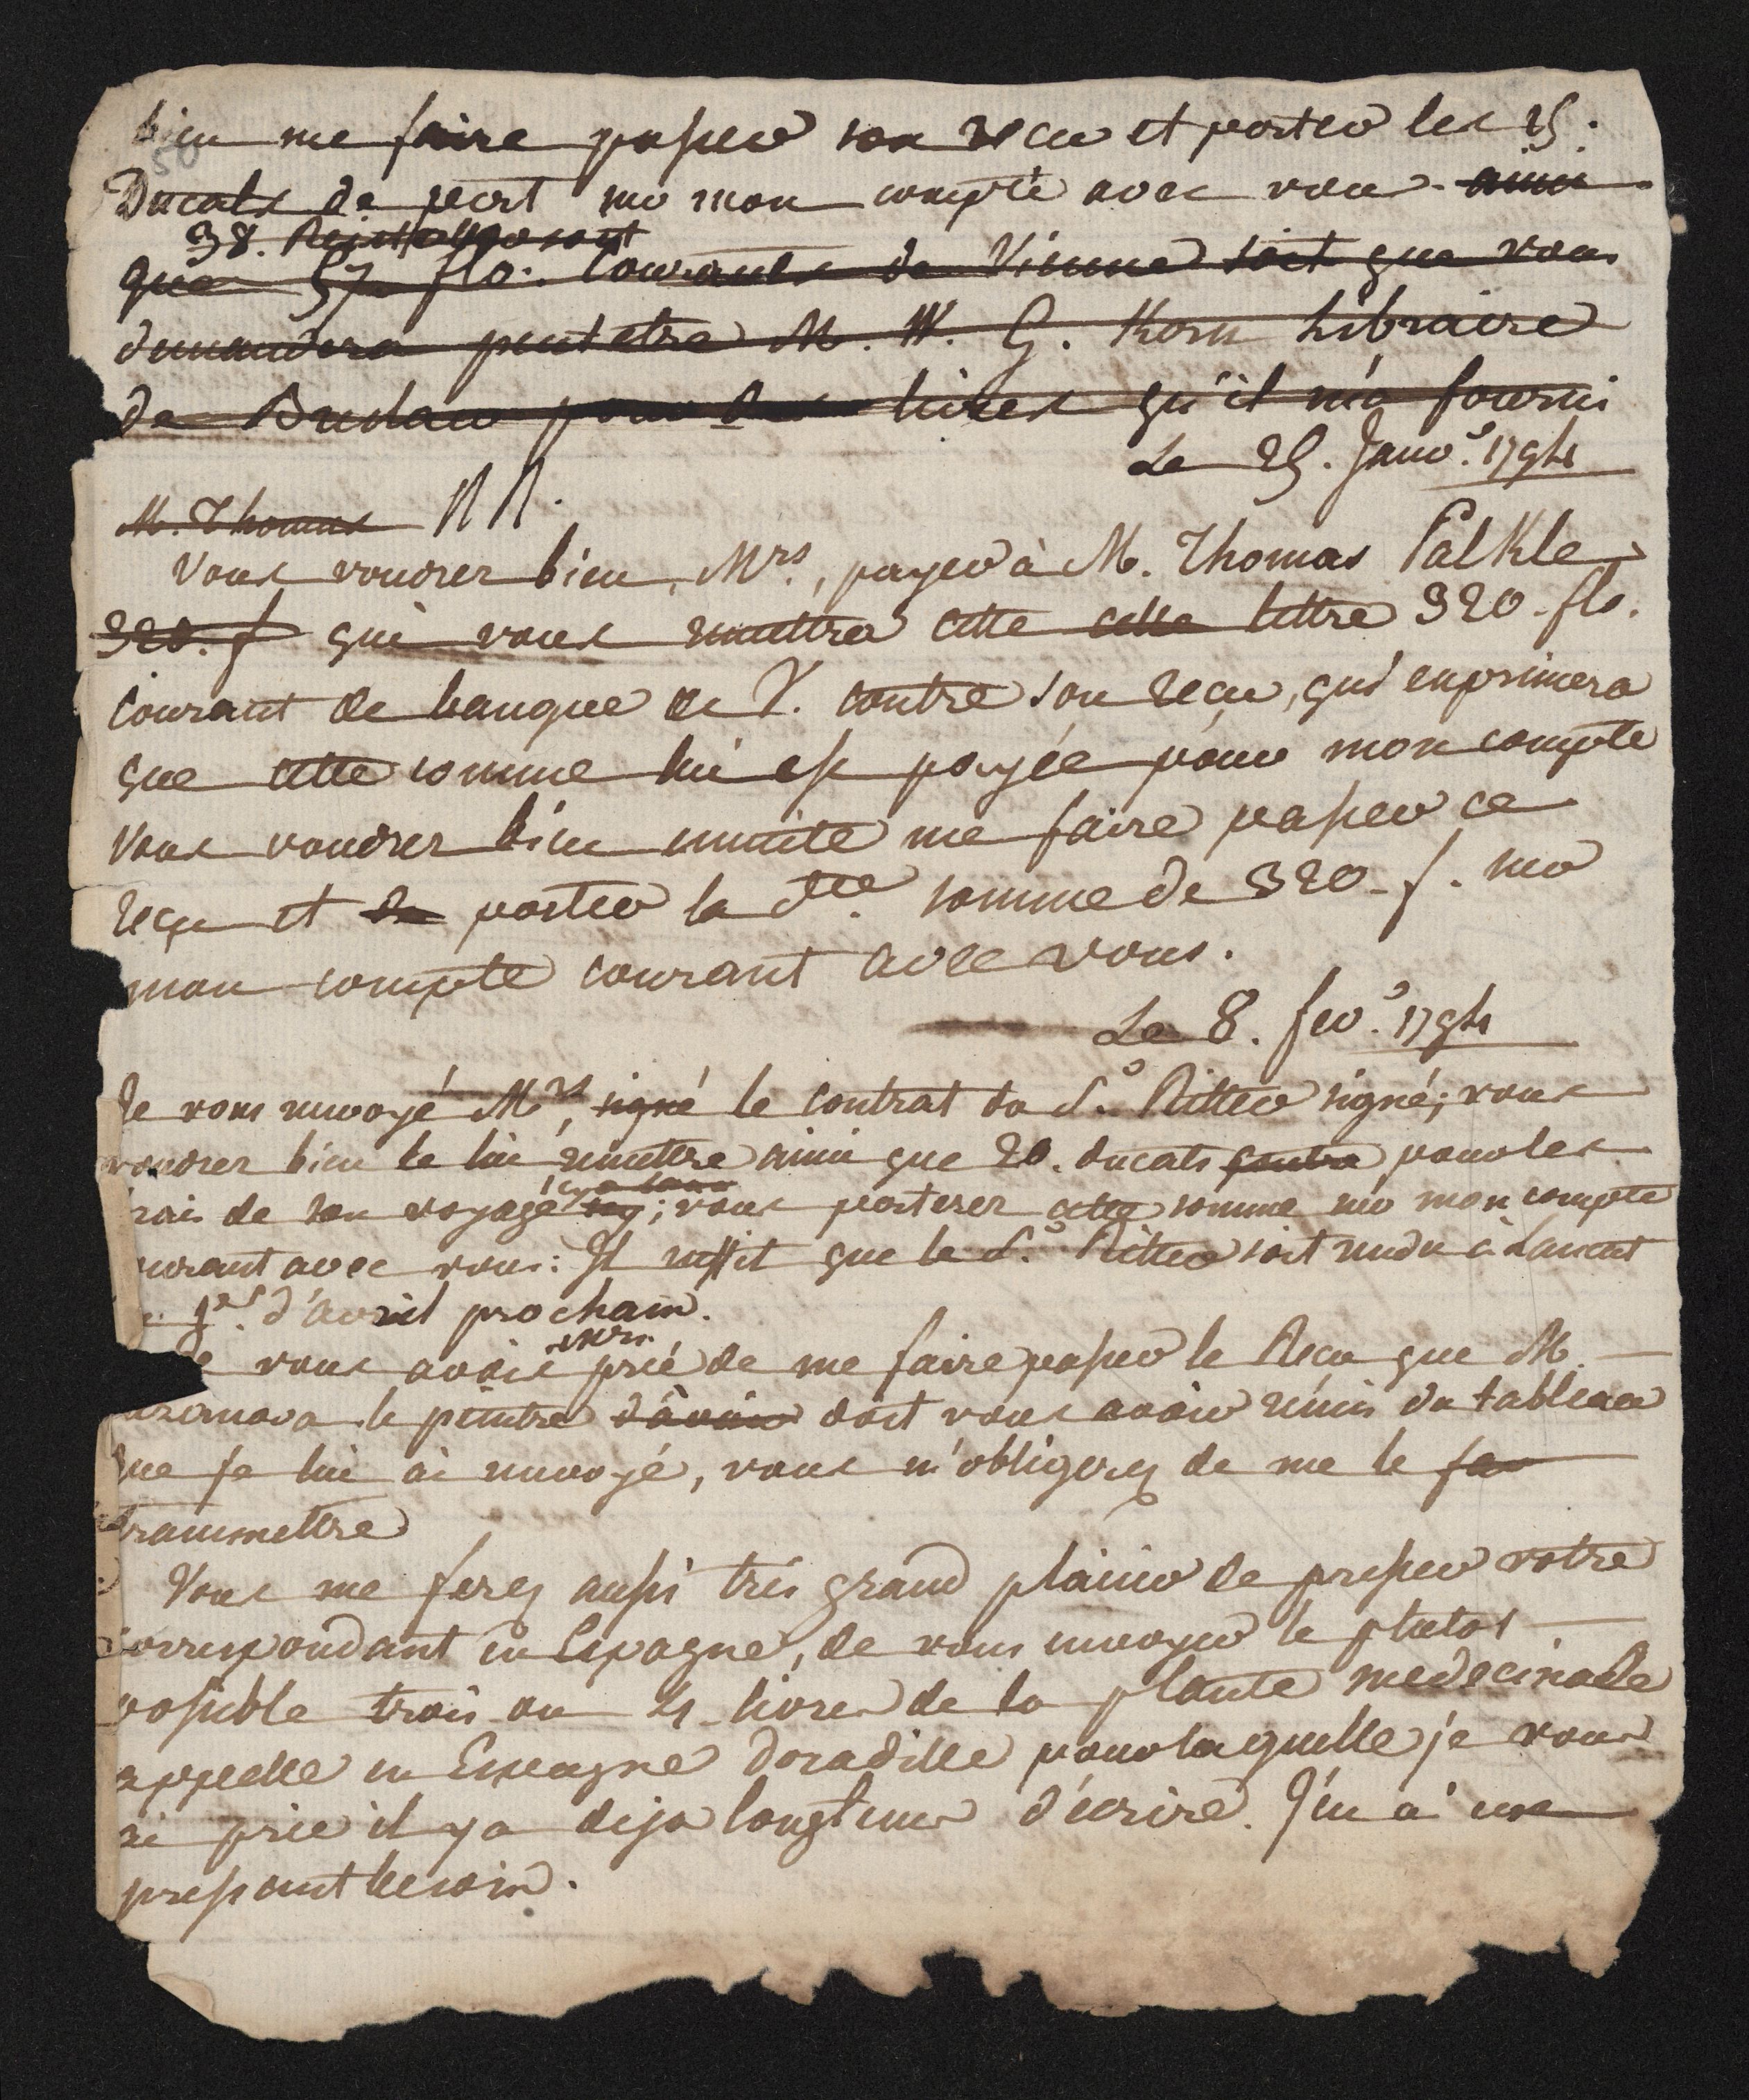 bien me faire passer son recu et porter les 25.
Ducats de port sur mon compte avec vous. ainsi
38.
que 57 flo. Courants de Vienne soit que vous
demandera peut etre M. W. G. Korn Libraire
de Breslau pour des livres qu'il m'a fourni
Le 25. Janv.r 1794
M. Thomas MM.
Vous voudrez bien, Mrs., payer à M. Thomas Palkle
320. f qui vous remettra cette cette lettre 320. flo.
Courant de banque de V. contre son recu, qui exprimera
que cette somme lui est payée pour mon compte
Vous voudrez bien ensuite me faire passer ce
reçu et de porter la dte. somme de 320. f. sur
mon compte courant avec vous.
Le 8. fev.r 1794
Je vous envoyé Mrs, signé le contrat du Sr. Ritter signé; vous
voudrez bien le lui remettre ainsi que 20. ducats contre pour les
rais de son voyage; vous porterez cette somme sur mon compte
urant avec vous: Il suffit que le Sr. Ritter soit rendu à Lancut
1er. d'avril prochain.
Mrs.
e vous avois prié de me faire passer le Recu que M.
le peintre d'avoir doit vous avoir remis du tableau
que je lui ai envoyé, vous m'obligerez de me le fa
transmettre
Vous me ferez aussi très grand plaisir de presser votre
correspondant en Espagne, de vous envoyer le plutot
possible trois ou 4 livres de la plante medecinale
appellée en Espagne Doradille pour laquelle je vous
ai prié il y a deja longtems d'écrire. J'en ai un
pressant besoin.